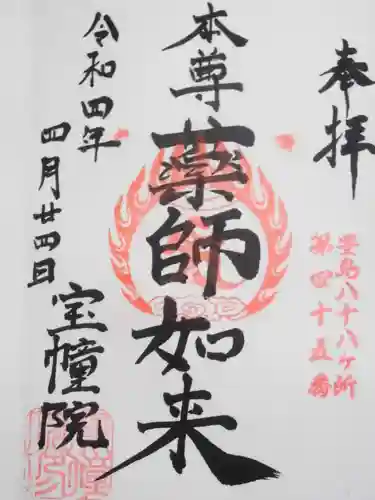 奉拝
豊島八十八ヶ所
第四十五番
本尊
薬師如来
令和四年
四月廿四日
宝幢院